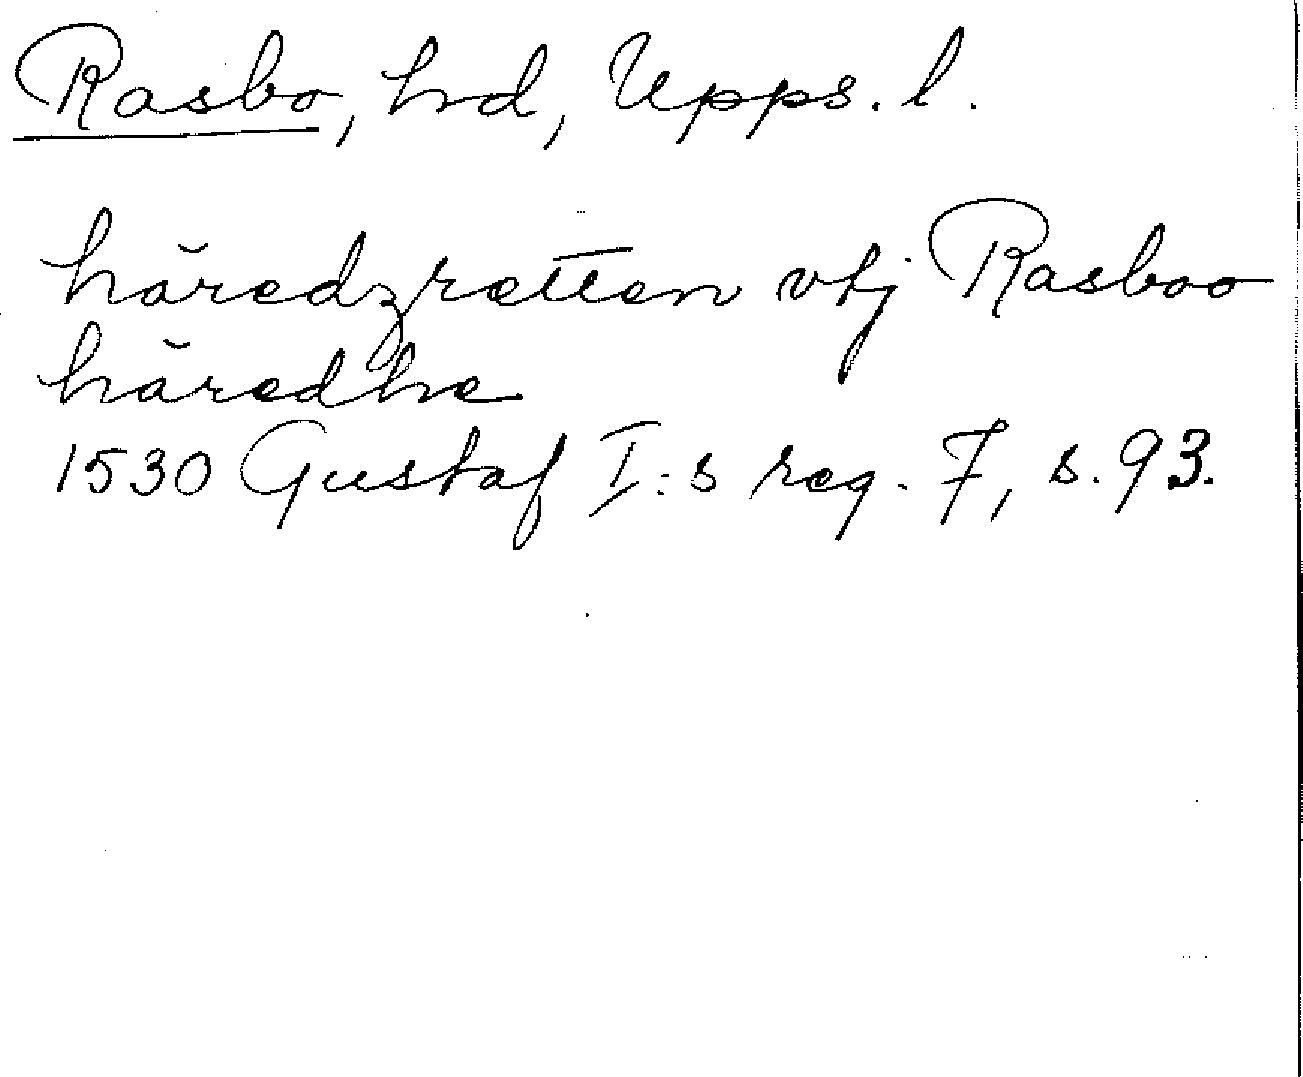 Rasbo, hd, Upps. l.
häredzretten vtj Rasboo
häredhe
1530 Gustaf I:s reg. 7, s. 93.